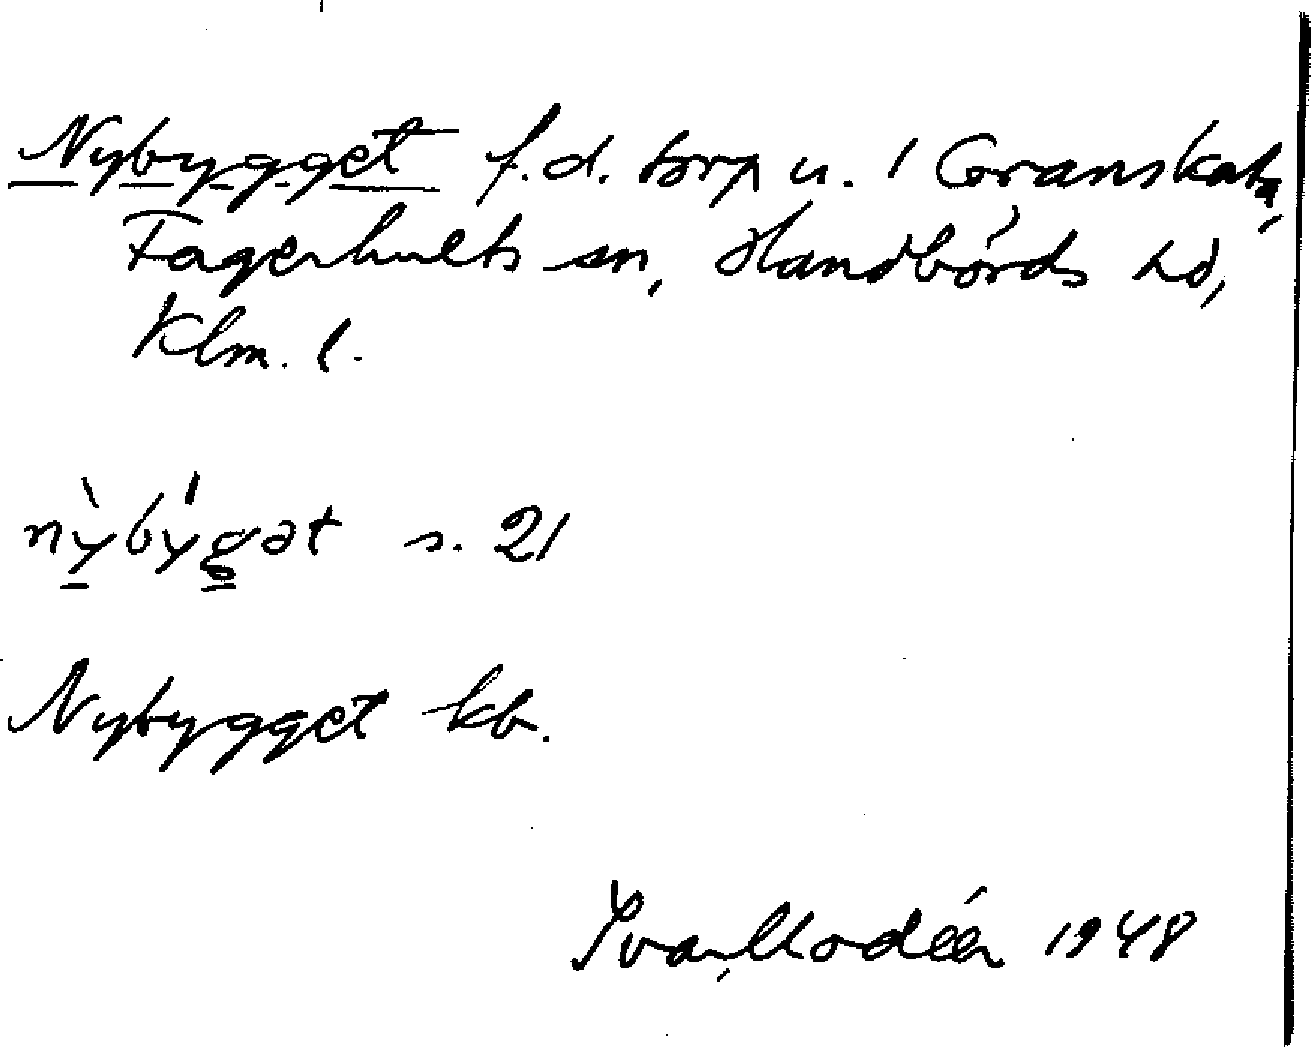 Nybygget f.d. torp u. 1 Granskat,
Fagerhults sn, Handbörds hd,
Klm. l.
nỳbýgət s. 21
Nybygget kb.
Ivar Modéer 1948